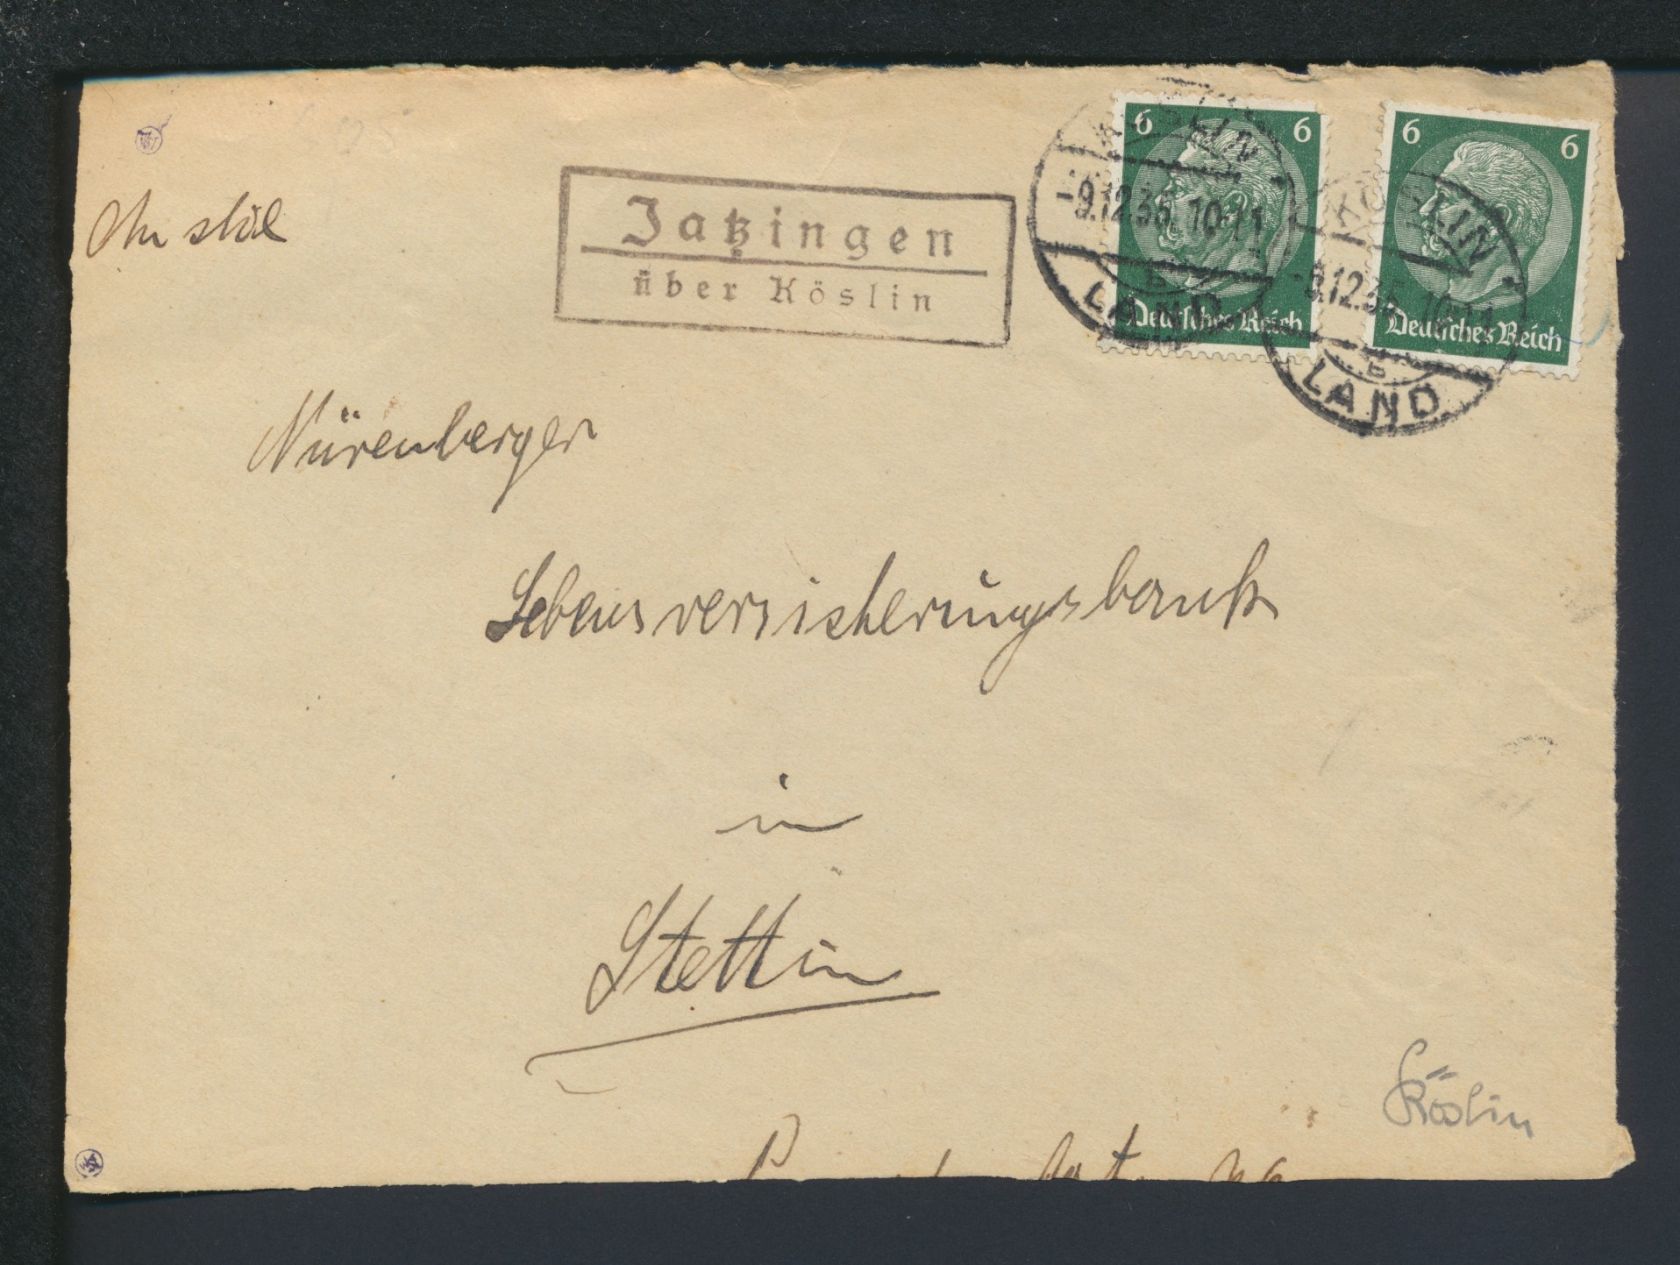 An die
Jatzingen
über Köslin
6 6
Deutsches Reich
KÖSLIN
-9.12.35.10-11
b
LAND
6 6
Deutsches Reich
KÖSLIN
-9.12.35.10-11
b
LAND
Nürenberger
Lebensversicherungsbank
in
Stettin
Köslin